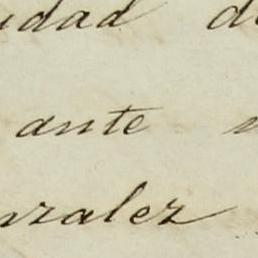 idad d
ante
nzalez